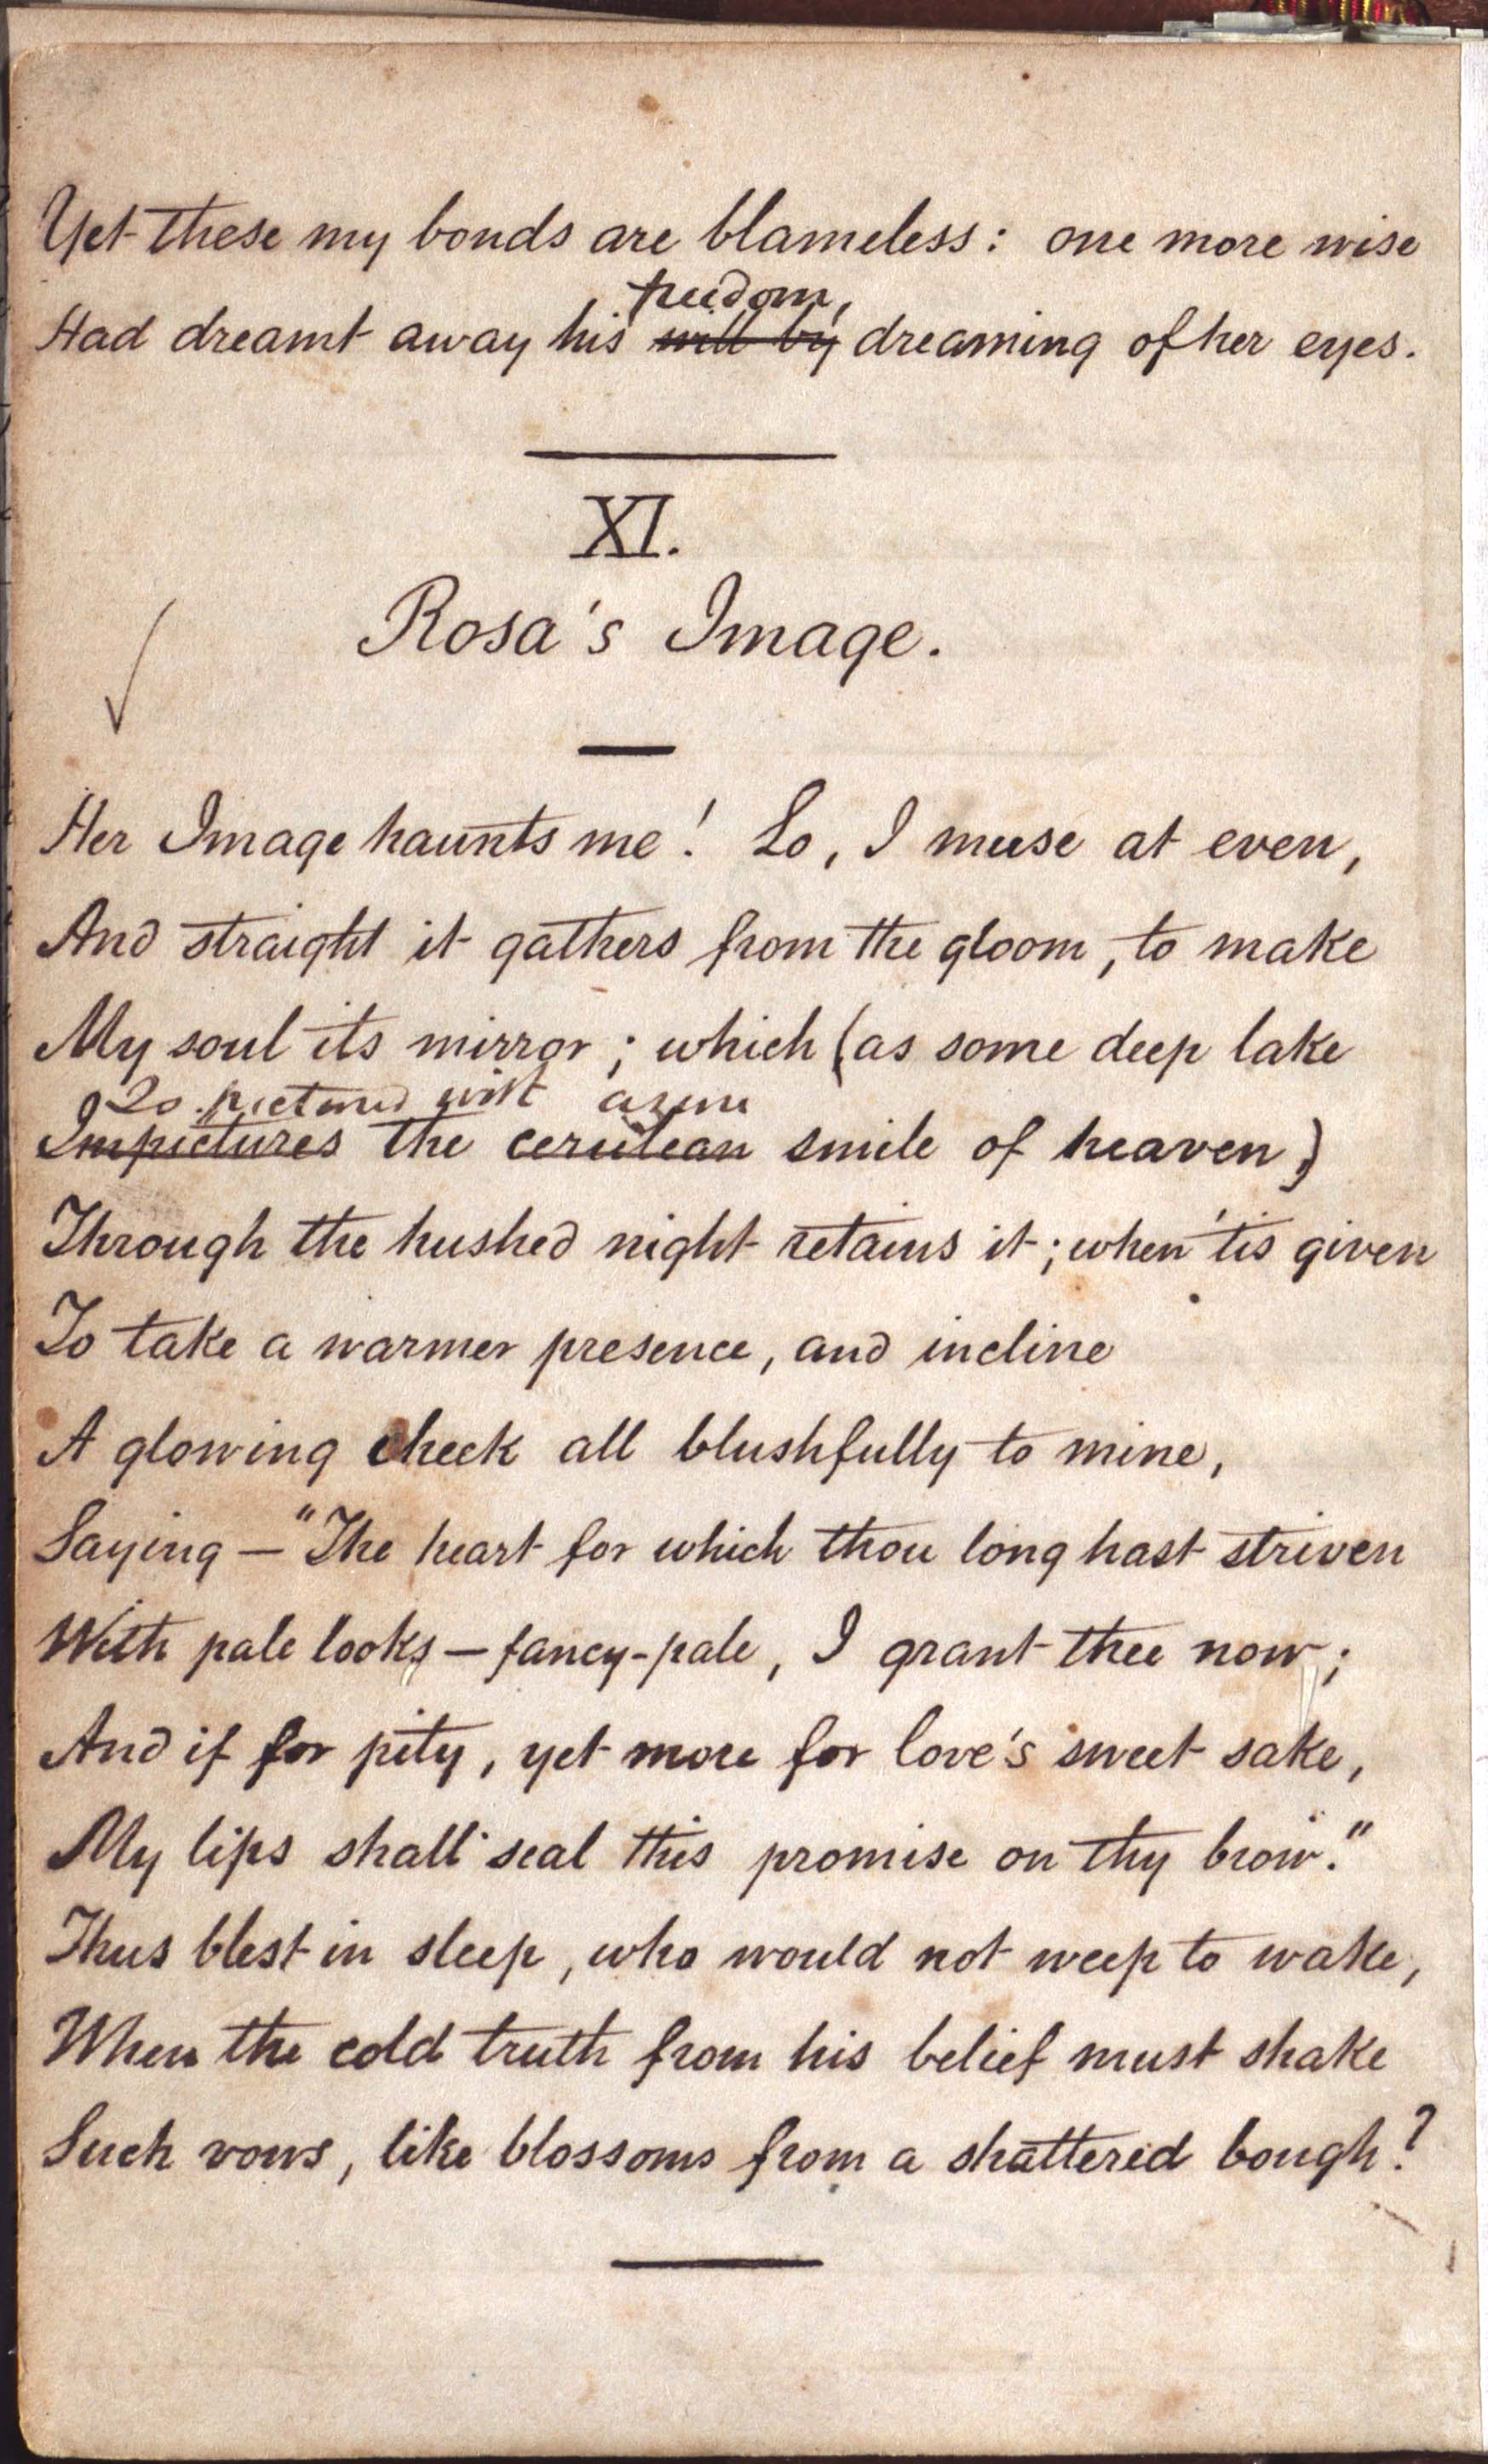 Yet these my bonds are blameless: one more wise
freedom,
Had dreamt away his will by dreaming of her eyes.
XI.
Rosa's Image.
Her Image haunts me! Lo, I muse at even,
And straight it gathers from the gloom, to make
My soul its mirror; which (as some deep lake
pictured with azure
Impictures the cerulean smile of heaven)
Through the hushed night retains it; when 'tis given
To take a warmer presence, and incline
A glowing cheek all blushfully to mine,
Saying — "The heart for which thou long hast striven
With pale looks — fancy-pale, I grant thee now;
And if for pity, yet more for love's sweet sake,
My lips shall seal this promise on thy brow."
Thus blest in sleep, who would not weep to wake,
When the cold truth from his belief must shake
Such vows, like blossoms from a shattered bough?